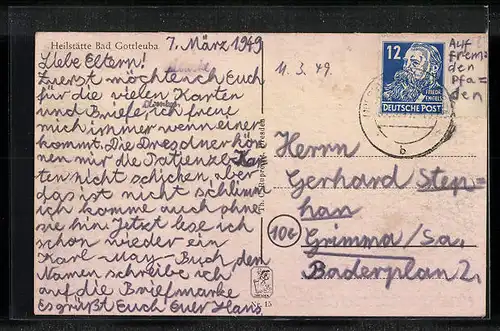 Heilstätte Bad Gottleuba
7. März 1949
Liebe Eltern!
Zuerst möchte ich Euch
für die vielen Karten
und Briefe, ich freue
mich immer wenn einer
kommt. Die Dresdner kön
nen mir die Patienze Ka
ten nicht schicken, aber
das ist nicht schlimm
ich komme auch ohne
sie hin. Jetzt lese ich
schon wieder ein
Karl-May-Buch den
Namen schreibe ich
auf die Briefmarke
Es grüßt Euch Euer Hans
11. 3. 49.
12
FRIEDR.
ENGELS
DEUTSCHE POST
b
Auf
frem-
den
Pfa-
den
Herrn
Gerhard Step-
han
10b
Grimma/Sa.
Baderplan 2
Nr. 15